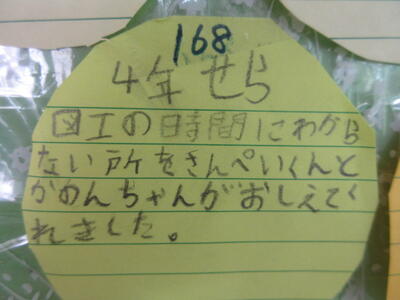 168
4年 せら
図工の時間にわから
ない所をきんぺいくんと
かのんちゃんがおしえてく
れました。